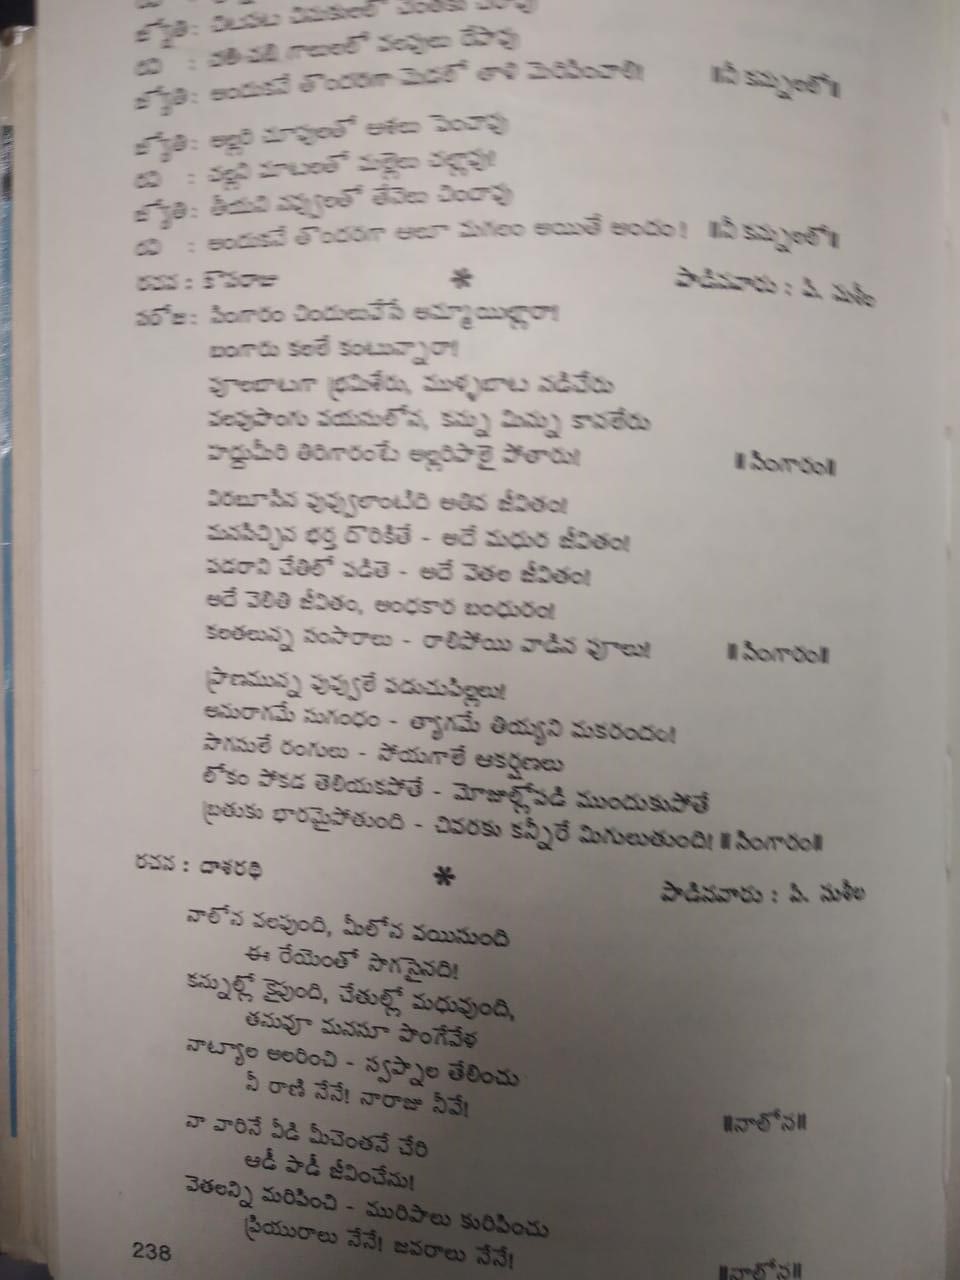 జ్యోతి: చిటపట చినుకులలో చెంతకు చేరావు
రవి : చలి చలి గాలులలో వలపులు రేపావు
జ్యోతి: అందుకనే తొందరగా మెడలో తాళి మెరిపించాలి! ॥నీ కన్నులలో॥
జ్యోతి: అల్లరి చూపులతో ఆశలు పెంచావు
రవి : చల్లని మాటలతో మల్లెలు చల్లావు!
జ్యోతి: తీయని నవ్వులతో తేనెలు చిందావు
రవి : అందుకనే తొందరగా ఆలూ మగలం అయితే అందం! ॥నీ కన్నులలో॥
రచన : కొసరాజు * పాడినవారు : పి. సుశీల
సరోజ: సింగారం చిందులువేసే అమ్మాయిల్లారా!
బంగారు కలలే కంటున్నారా!
పూలబాటగా భ్రమిశేరు, ముళ్ళబాట నడిచేరు
వలపుపొంగు వయసులోన, కన్ను మిన్ను కానలేరు
హద్దుమీరి తిరిగారంటే అల్లరిపాలై పోతారు! ॥సింగారం॥
విరబూసిన పువ్వులాంటిది అతివ జీవితం!
మనసిచ్చిన భర్త దొరికితే - అదే మధుర జీవితం!
పడరాని చేతిలో పడితె - అదే వెతల జీవితం!
అదే వెలితి జీవితం, అంధకార బంధురం!
కలతలున్న సంసారాలు - రాలిపోయి వాడిన పూలు! ॥సింగారం॥
ప్రాణమున్న పువ్వులే పడుచుపిల్లలు!
అనురాగమే సుగంధం - త్యాగమే తియ్యని మకరందం!
సొగసులే రంగులు - సోయగాలే ఆకర్షణలు
లోకం పోకడ తెలియకపోతే - మోజుల్లోపడి ముందుకుపోతే
బ్రతుకు భారమైపోతుంది - చివరకు కన్నీరే మిగులుతుంది! ॥సింగారం॥
రచన : దాశరథి * పాడినవారు : పి. సుశీల
నాలోన వలపుంది, మీలోన వయసుంది
ఈ రేయెంతో సొగసైనది!
కన్నుల్లో కైపుంది, చేతుల్లో మధువుంది,
తనువూ మనసూ పొంగేవేళ
నాట్యాల అలరించి - స్వప్నాల తేలించు
నీ రాణి నేనే! నారాజు నీవే! ॥నాలోన॥
నా వారినే వీడి మీచెంతనే చేరి
ఆడీ పాడీ జీవించేను!
వెతలన్ని మరిపించి - మురిపాలు కురిపించు
ప్రియురాలు నేనే! జవరాలు నేనే! ॥నాలోన॥
238